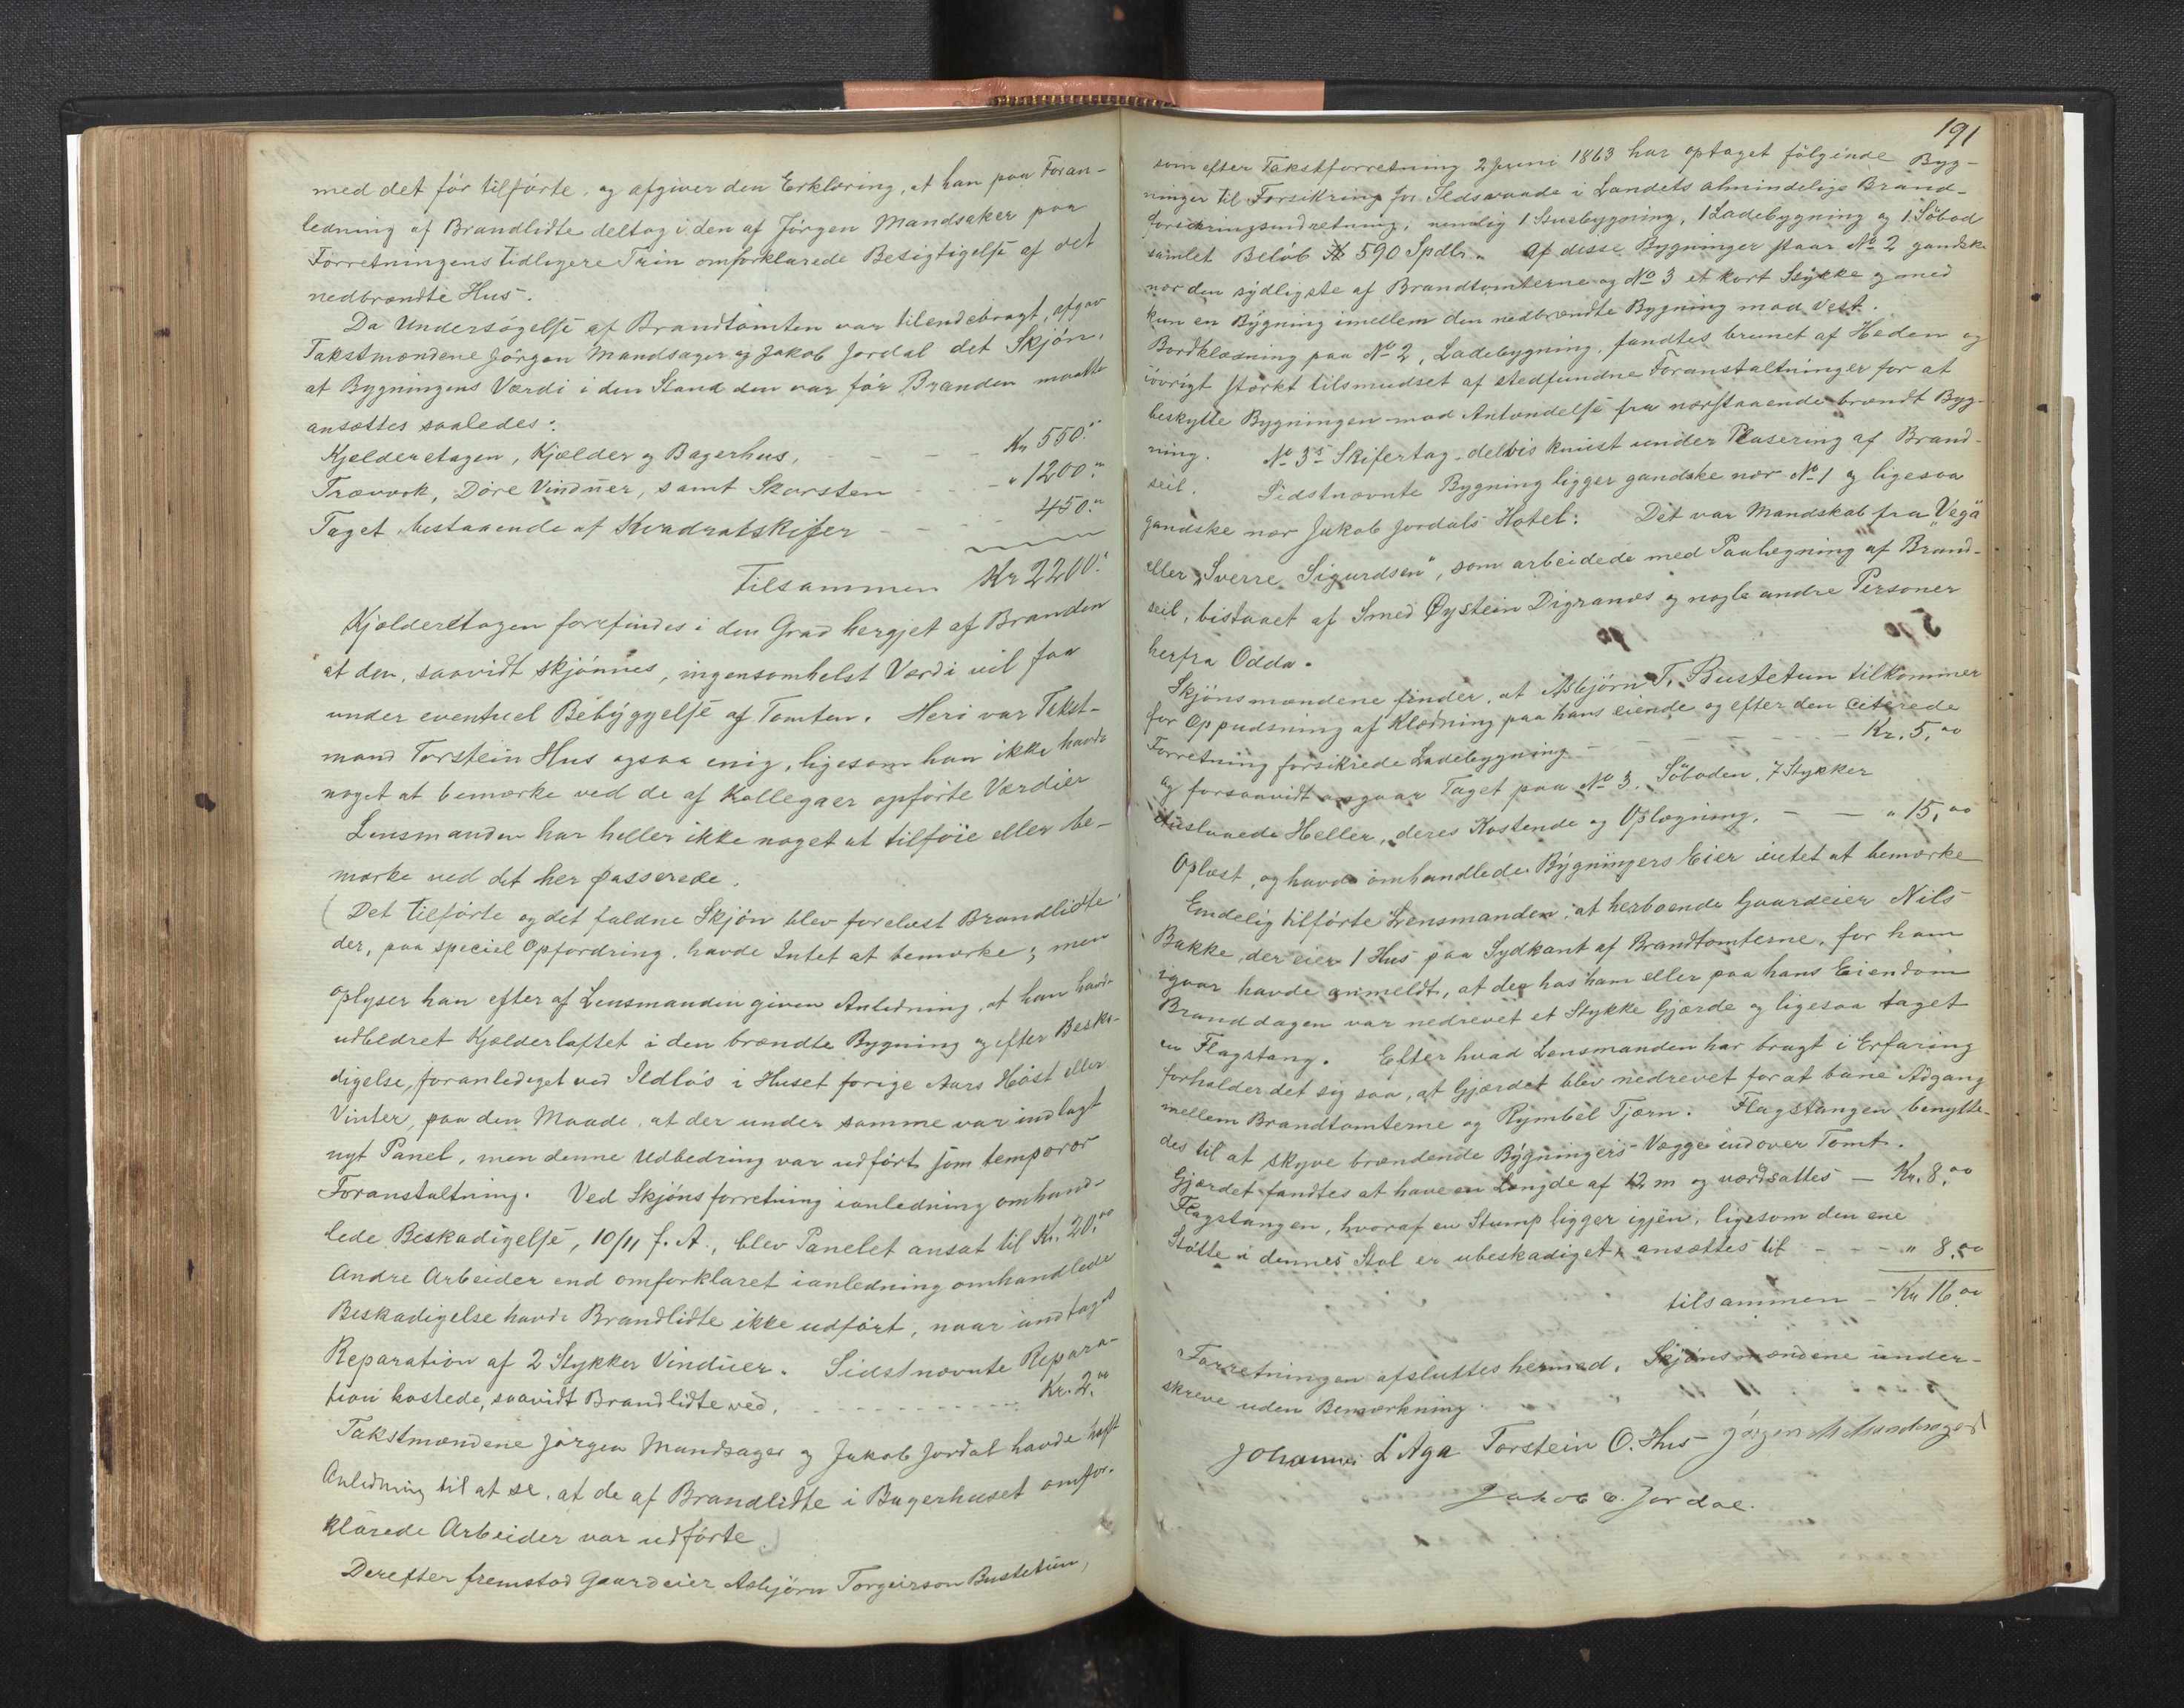 med det før tilførte, og afgiver den Erklæring, at han paa Foran-
ledning af Brandlidte deltog i den af Jörgen Mandsaker paa
Forretningens tidligere Trin omforklarede Besigtigelse af det
nedbrændte Hus.
Da Undersögelse af Brandtomten var tilendebragt, afgav
Takstmændene Jörgen Mandsager og Jakob Jordal det Skjön,
at Bygningens Værdi i den Stand den var för Branden maatte
ansættes saaledes:
Kjelderetagen, Kjælder og Bagerhus, - - - - Kr 550."
Træværk, Döre Vinduer, samt Skorsten - - - " 1200."
Taget, bestaaende af Kvadratskifer - - - 450."
Tilsammen Kr 2200."
Kjælderetagen forefindes i den Grad hergjet af Branden
at den, saavidt skjönnes, ingensomhelst Værdi vil faa
under eventuel Bebyggelse af Tomten. Heri var Takst-
mand Torstein Hus ogsaa enig, ligesom han ikke havde
noget at bemærke ved de af Kollegaer opförte Værdier
Lensmanden har heller ikke noget at tilföie eller be-
mærke ved det her passerede.
(Det tilförte og det faldne Skjön blev forelæst Brandlidte
der, paa speciel Opfordring, havde Intet at bemærke; men
oplyser han efter af Lensmanden given Anledning, at han havde
udbedret Kjælderloftet i den brændte Bygning og efter Beska-
digelse, foranlediget ved Ildlös i Huset forige Aars Höst eller
Vinter, paa den Maade, at der under samme var indlagt
nyt Panel, men denne Udbedring var udfört som temporær
Foranstaltning. Ved Skjönsforretning ianledning omhand-
lede Beskadigelse, 10/11 f. A., blev Panelet ansat til Kr. 20.00
Andre Arbeider end omforklaret ianledning omhandlede
Beskadigelse havde Brandlidte ikke udfört, naar undtages
Reparation af 2 Stykker Vinduer. Sidstnævnte Repara-
tion kostede, saavidt Brandlidte ved, - - - - Kr. 2.00
Takstmændene Jörgen Mandsager og Jakob Jordal havde haft
Anledning til at se, at de af Brandlidte i Bagerhuset omfor-
klarede Arbeider var udförte.)
Derefter fremstod Gaardeier Asbjörn Torgeirson Bustetün,
191
som efter Takstforretning 2 Juni 1863 har optaget fölgende Byg-
ninger til Forsikring for Ildsvaade i Landets almindelige Brand-
forsikringsindretning; nemlig 1 Stuebygning, 1 Ladebygning og 1 Söbod
samlet Belöb 590 Spdlr. Af disse Bygninger staar No 2 ganske
nær den sydligste af Brandtomterne og No 3 et kort Stykke og med
kun en Bygning imellem den nedbrændte Bygning mod Vest.
Bordklædning paa No 2, Ladebygning, fandtes brunet af Heden og
iövrigt stærkt tilsmudset af stedfundne Foranstaltninger for at
beskytte Bygningen mod Antændelse fra nærstaaende brændt Byg-
ning. No 3s Skifertag delvis knust under Plasering af Brand-
seil. Sidstnævnte Bygning ligger gandske nær No 1 og ligesaa
gandske nær Jakob Jordals Hotel. Det var Mandskab fra "Vega"
eller "Sverre Sigurdsen", som arbeidede med Paalægning af Brand-
seil, bistaaet af Smed Øystein Digranes og nogle andre Personer
herfra Odda.
Skjönsmændene finder, at Asbjörn T. Bustetun tilkommer
for Oppudsning af Klædning paa hans eiende og efter den citerede
Forretning forsikrede Ladebygning - - - - Kr. 5,00
og forsaavidt angaar Taget paa No 3. Söboden, 7 Stykker
itusslaaede Heller, deres Kostende og Oplægning, - - " 15,00
Oplæst, og havde omhandlede Bygningers Eier intet at bemærke
Endelig tilförte Lensmanden, at herboende Gaardeier Nils
Bakke, der eier 1 Hus paa Sydkant af Brandtomterne, for ham
igaar havde anmeldt, at der hos ham eller paa hans Eiendom
Branddagen var nedrevet et Stykke Gjærde og ligesaa taget
en Flagstang. Efter hvad Lensmanden har bragt i Erfaring
forholder det sig saa, at Gjærdet blev nedrevet for at bane Adgang
mellem Brandtomterne og Rymbel Tjærn. Flagstangen benytte-
des til at skyve brændende Bygningers Vægge indover Tomt.
Gjærdet fandtes at have en Længde af 12 m og værdsattes - Kr. 8,00
Flagstangen, hvoraf en Stump ligger igjen, ligesom den ene
Stötte i dennes Stol er ubeskadiget, ansættes til - - - " 8.00
tilsammen - Kr 16.00
Forretningen afsluttes hermed. Skjönsmændene under-
skreve uden Bemærkning.
Johannes L Aga Torstein O. Hus Jörgen M Mandsager
Jakob E. Jordal.